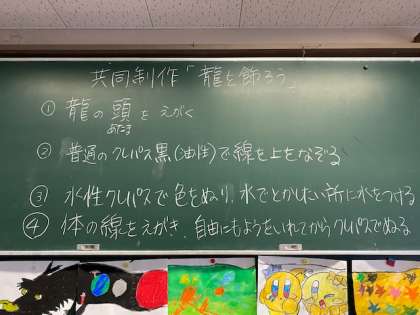 共同制作「龍を飾ろう」
① 龍の頭をえがく
あたま
② 普通のクレパス黒(油性)で線を上をなぞる
③ 水性クレパスで色をぬり、水でとかしたい所に水をつける
④ 体の線をえがき、自由にもようをいれてからクレパスでぬる